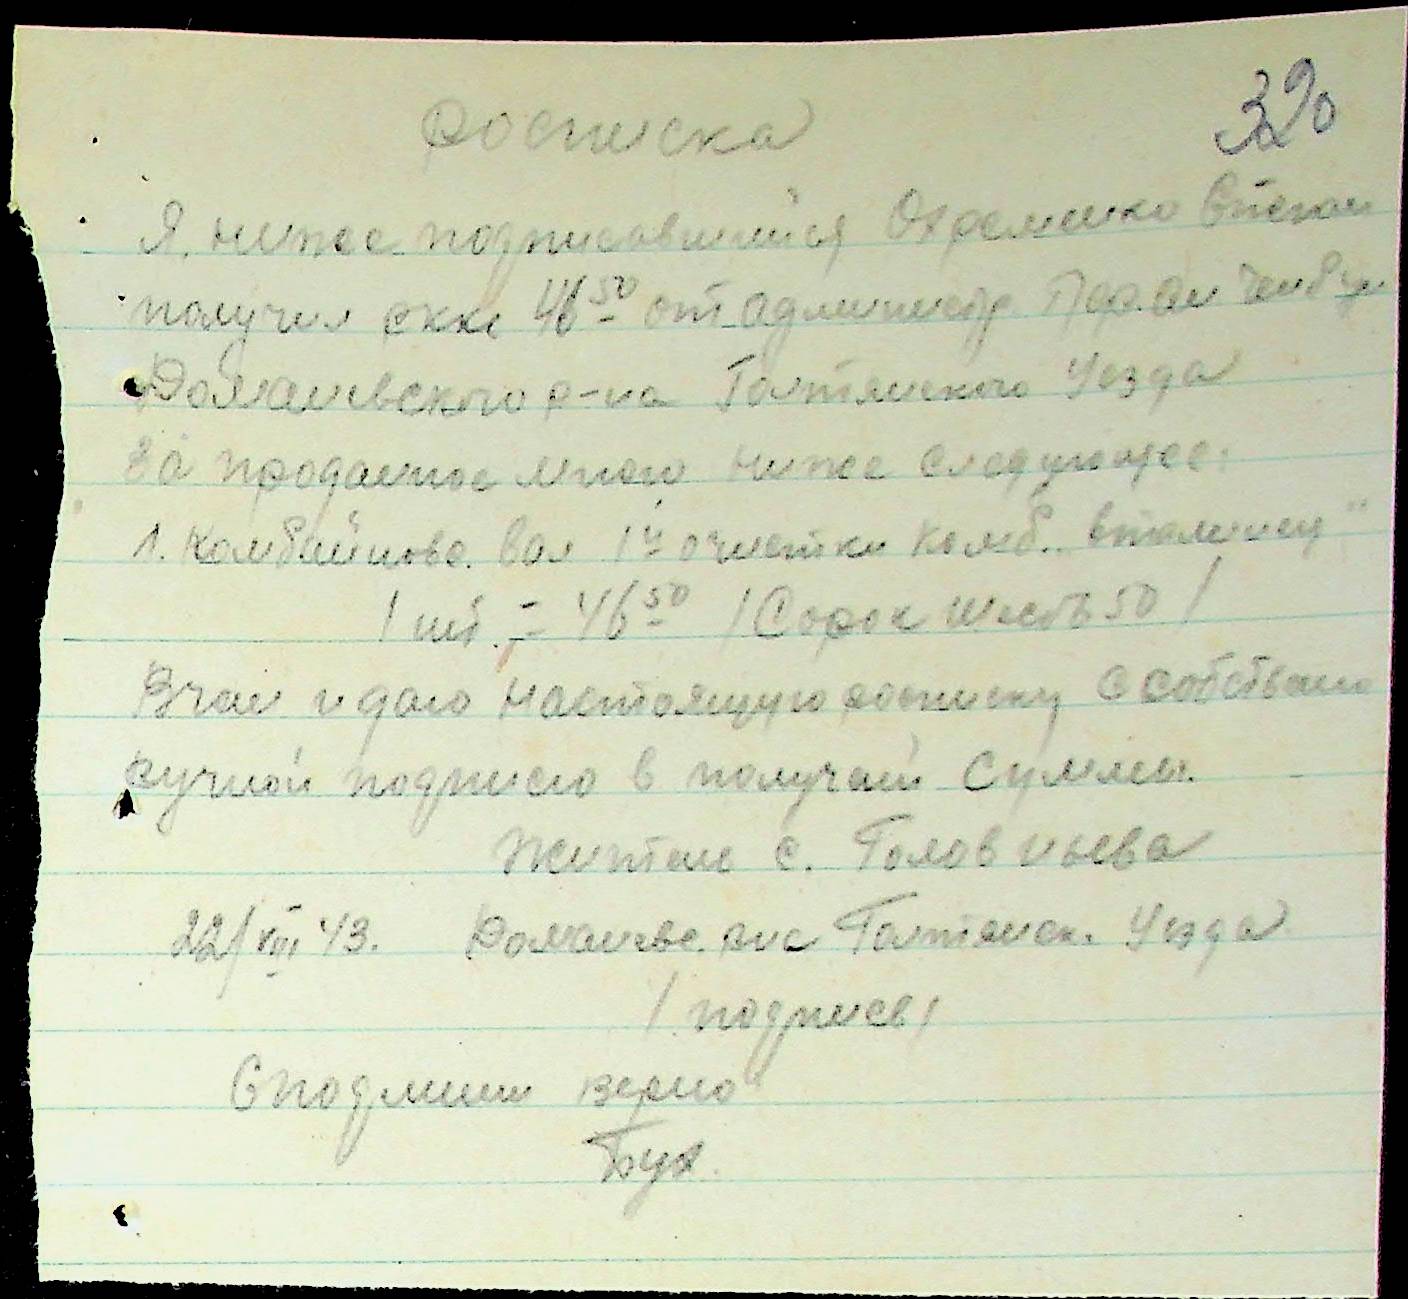 320
Росписка
Я, ниже подписавшийся Охременко Степан
получил ркке 46 50 от администр.
Доманевского р-на Голтянского Уезда
За проданное мною ниже следующее:
1. Комбайнове. Вал 1й очистки Комб. "
1 шт. = 46 50 / Сорок шесть 50 /
В чем и даю настоящую росписку с собствено
ручной подписю в получен Суммы.
Житель с. Головнева
22/VIII 43. Доманевс. рна Голтянск. Уезда
/ подпись /
С подлиным верно
Бух.